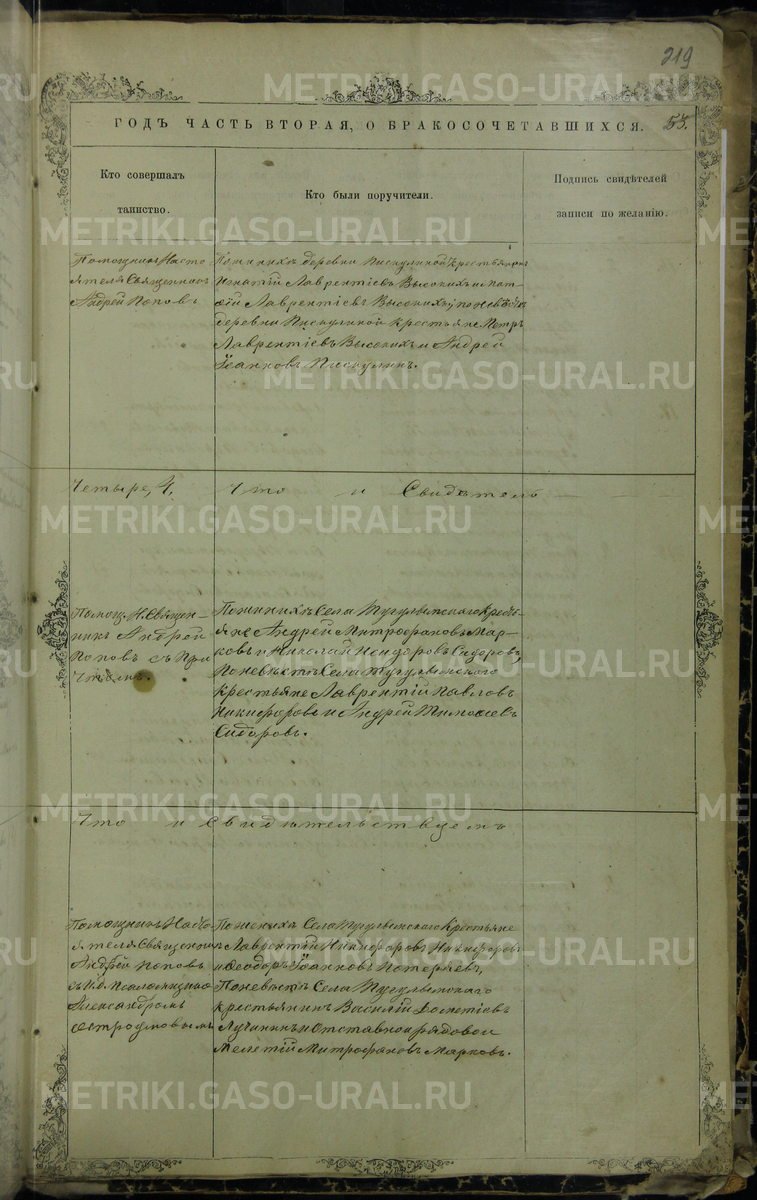 219
ГОДЪ ЧАСТЬ ВТОРАЯ, О БРАКОСОЧЕТАВШИХСЯ.
53.
Кто совершалъ
таинство.
Кто были поручители.
Подпись свидѣтелей
записи по желанію.
Помощникъ Насто
ятеля Священникъ
Андрей Поповъ
По женихѣ деревни Пискулиной крестьяне
Игнатій Лаврентіевъ Высокихъ и
Лаврентіевъ Высокихъ; по невѣстѣ
деревни Пискулиной крестьяне Петръ
Лаврентіевъ Высокихъ и Андрей
Іоанновъ Пискулинъ.
Четыре, 4,
Что и Свидѣтель
Помощ. Н. Священ-
никъ Андрей
Поповъ съ При
чтомъ.
По женихѣ Села Тугулымскаго кресть-
яне Андрей Митрофановъ Мар-
ковъ и Николай Сидоровъ,
По невѣстѣ Села Тугулымскаго
крестьяне Лаврентій Павловъ
Никифоровъ и Андрей Тимоѳеевъ
Сидоровъ.
Что и Свидѣтельствуемъ
Помощникъ Насто-
ятеля Священникъ
Андрей Поповъ
съ И.д. Псаломщика
Александромъ
По женихѣ Села Тугулымскаго Крестьяне
Лаврентій Никифоровъ Никифоровъ
и Ѳеодоръ Іоанновъ Потеряевъ,
По невѣстѣ Села Тугулымскаго
крестьянинъ Василій Дометіевъ
Лучининъ и Отставной рядовой
Мелетій Митрофановъ Марковъ.
METRIKI.GASO-URAL.RU